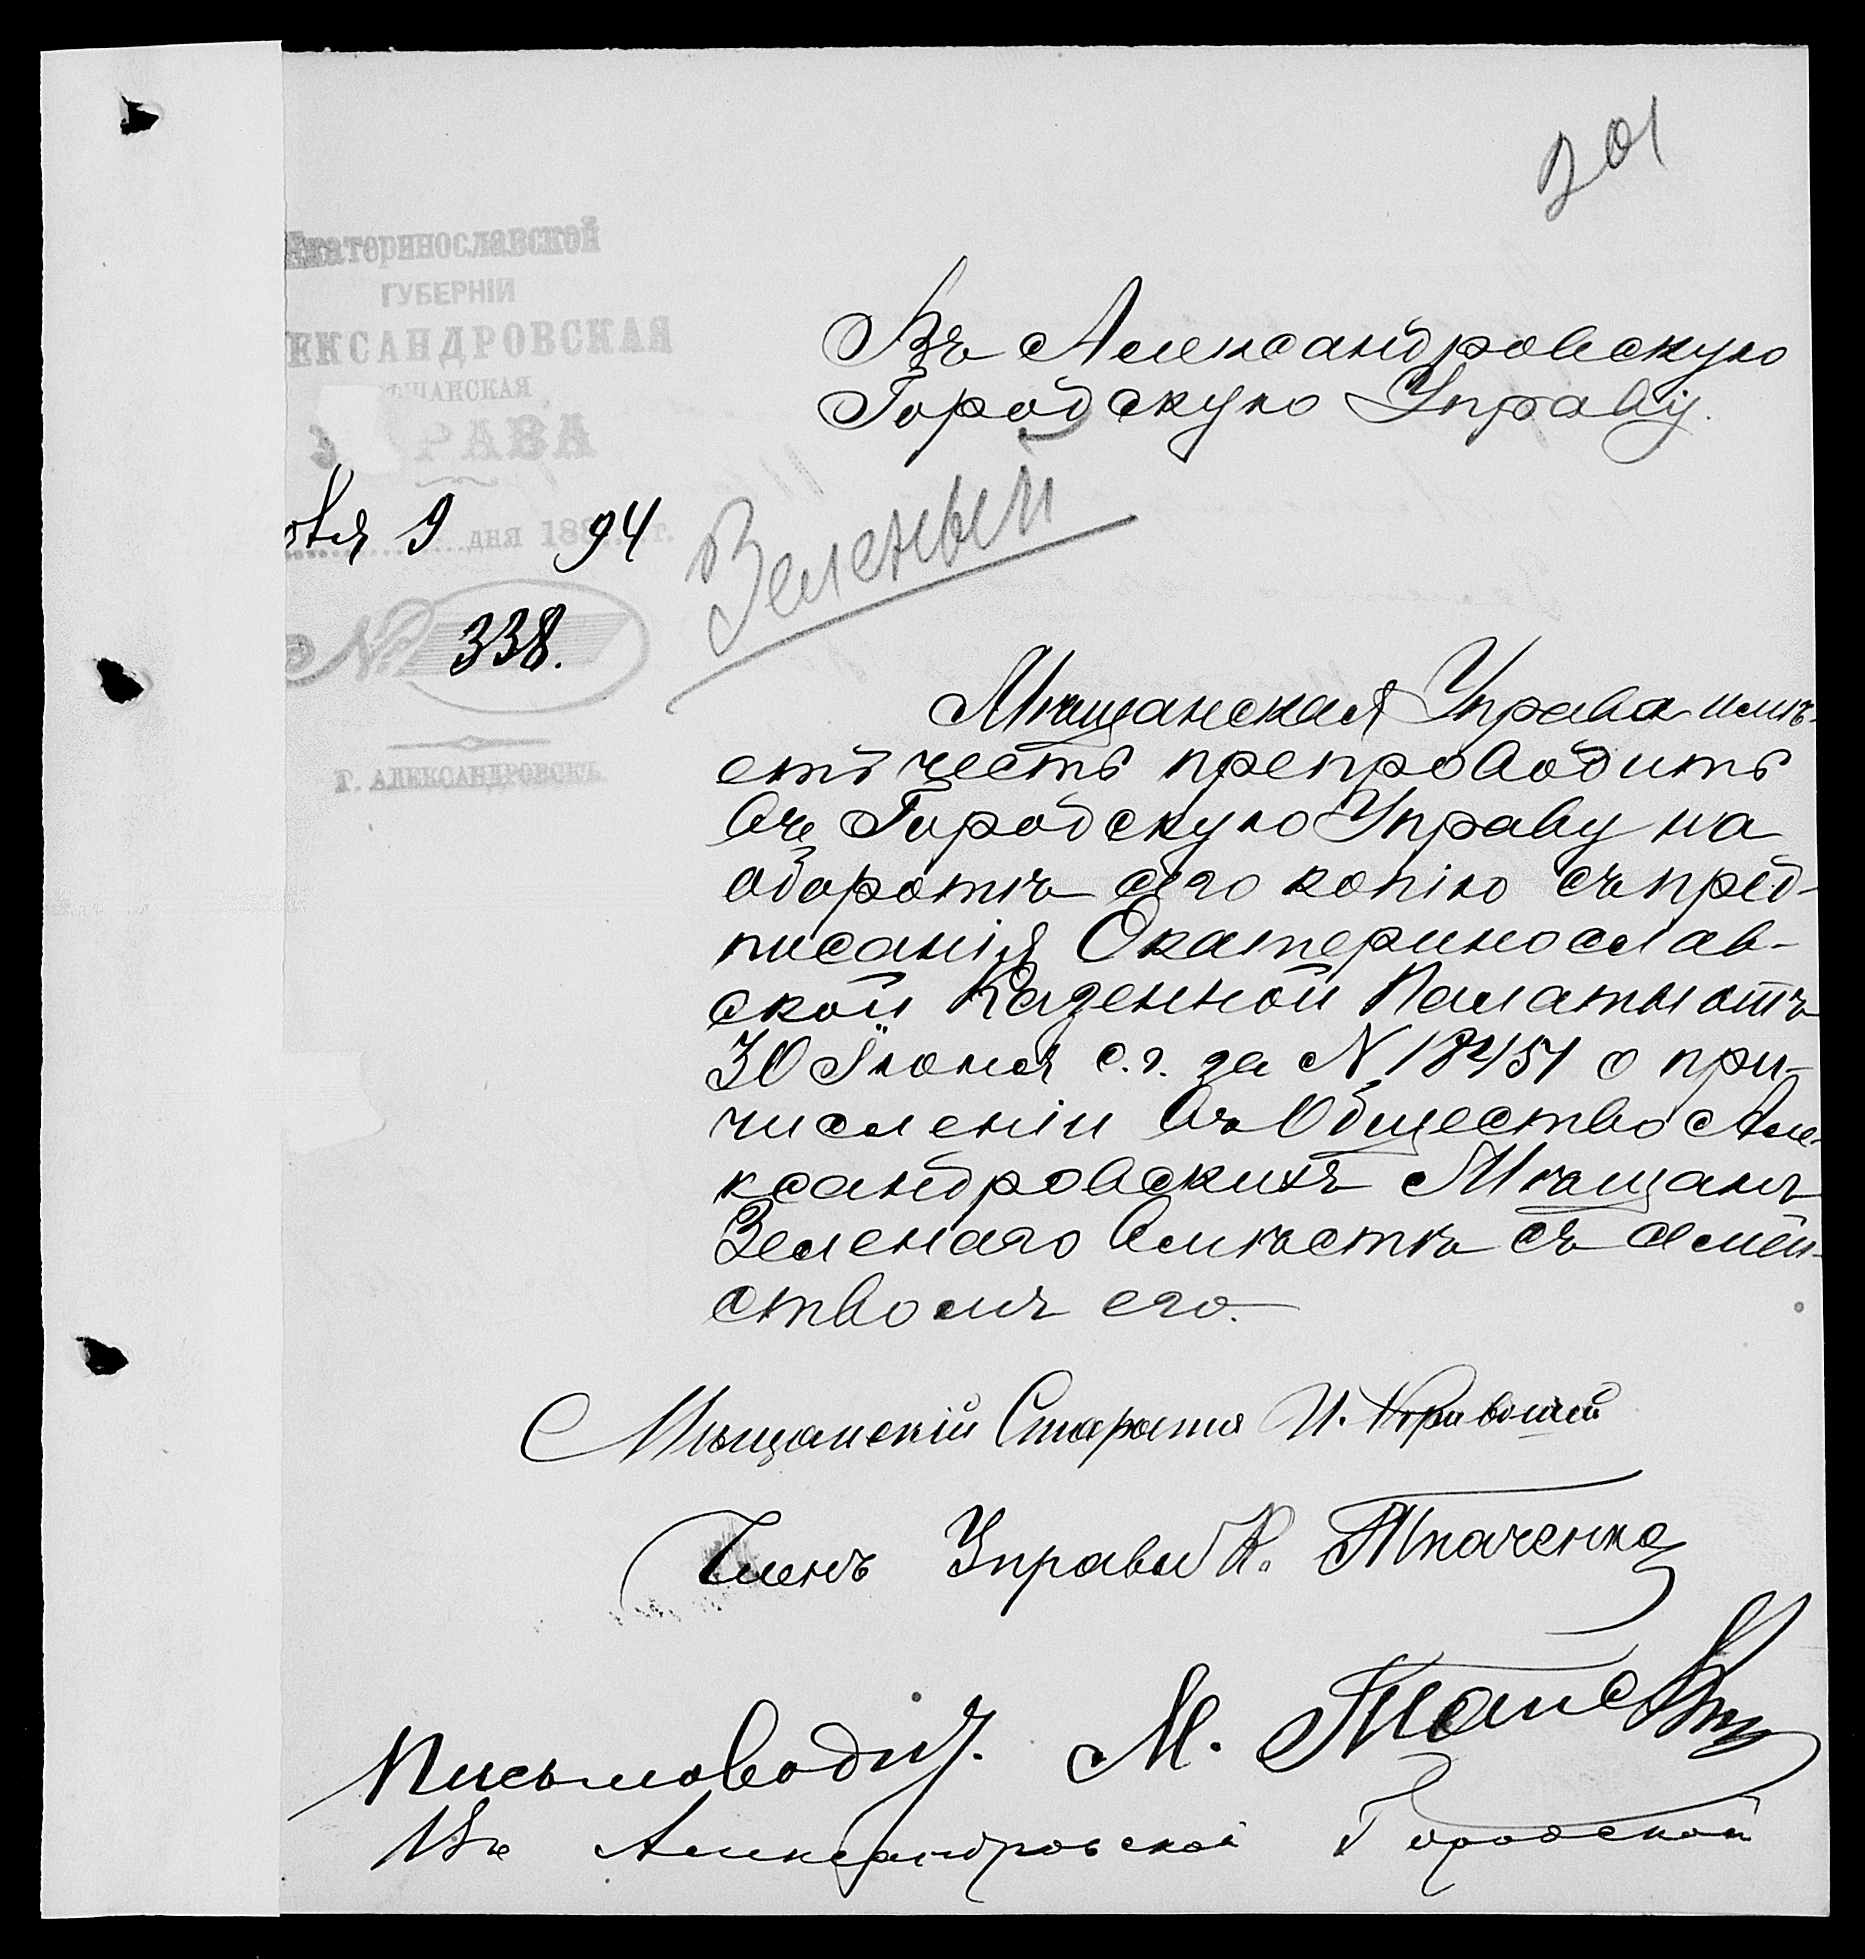 201
Екатеринославской
ГУБЕРНІИ
ЕКСАНДРОВСКАЯ
ЩАНСКАЯ
РАВА
9 дня 188 94 г.
№ 338.
Г. АЛЕКСАНДРОВСКЪ.
Въ Александровскую
Городскую Управу.
Зеленый
Мѣщанская Управа имѣ-
етъ честь препроводить
въ Городскую Управу на
оборотѣ сего копію съ пред-
писанія Екатеринослав-
ской Казенной Палаты отъ
30 Іюня с.г. за N о при-
численіи въ Общество Але-
ксандровскихъ Мѣщанъ
Зеленаго вмѣстѣ съ семей-
ствомъ его.
Мѣщанскій Староста И.
Членъ Управы К. Ткаченко
Письмовод. М.
Въ Александровской Городской